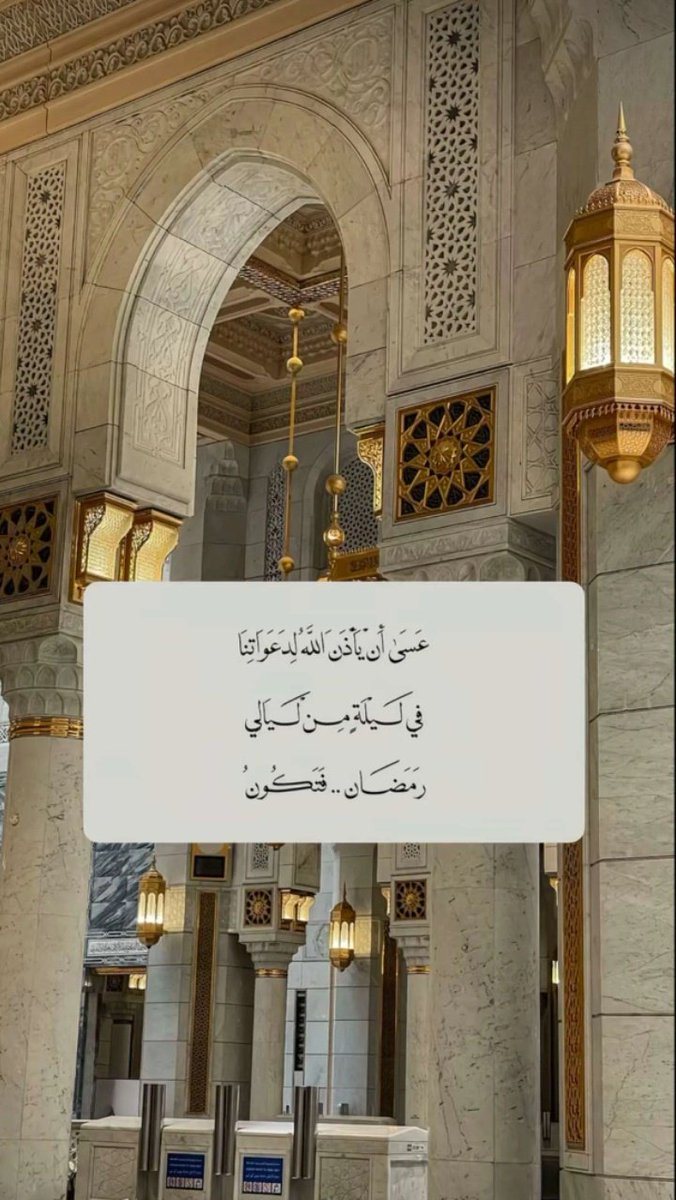 عَسَىٰ أَنْ يَأْذَن اللَّهُ لِدَعَوَاتِنَا
فِي لَيْلَةٍ مِن لَيَالي
رَمَضَان .. فَتَكُونُ